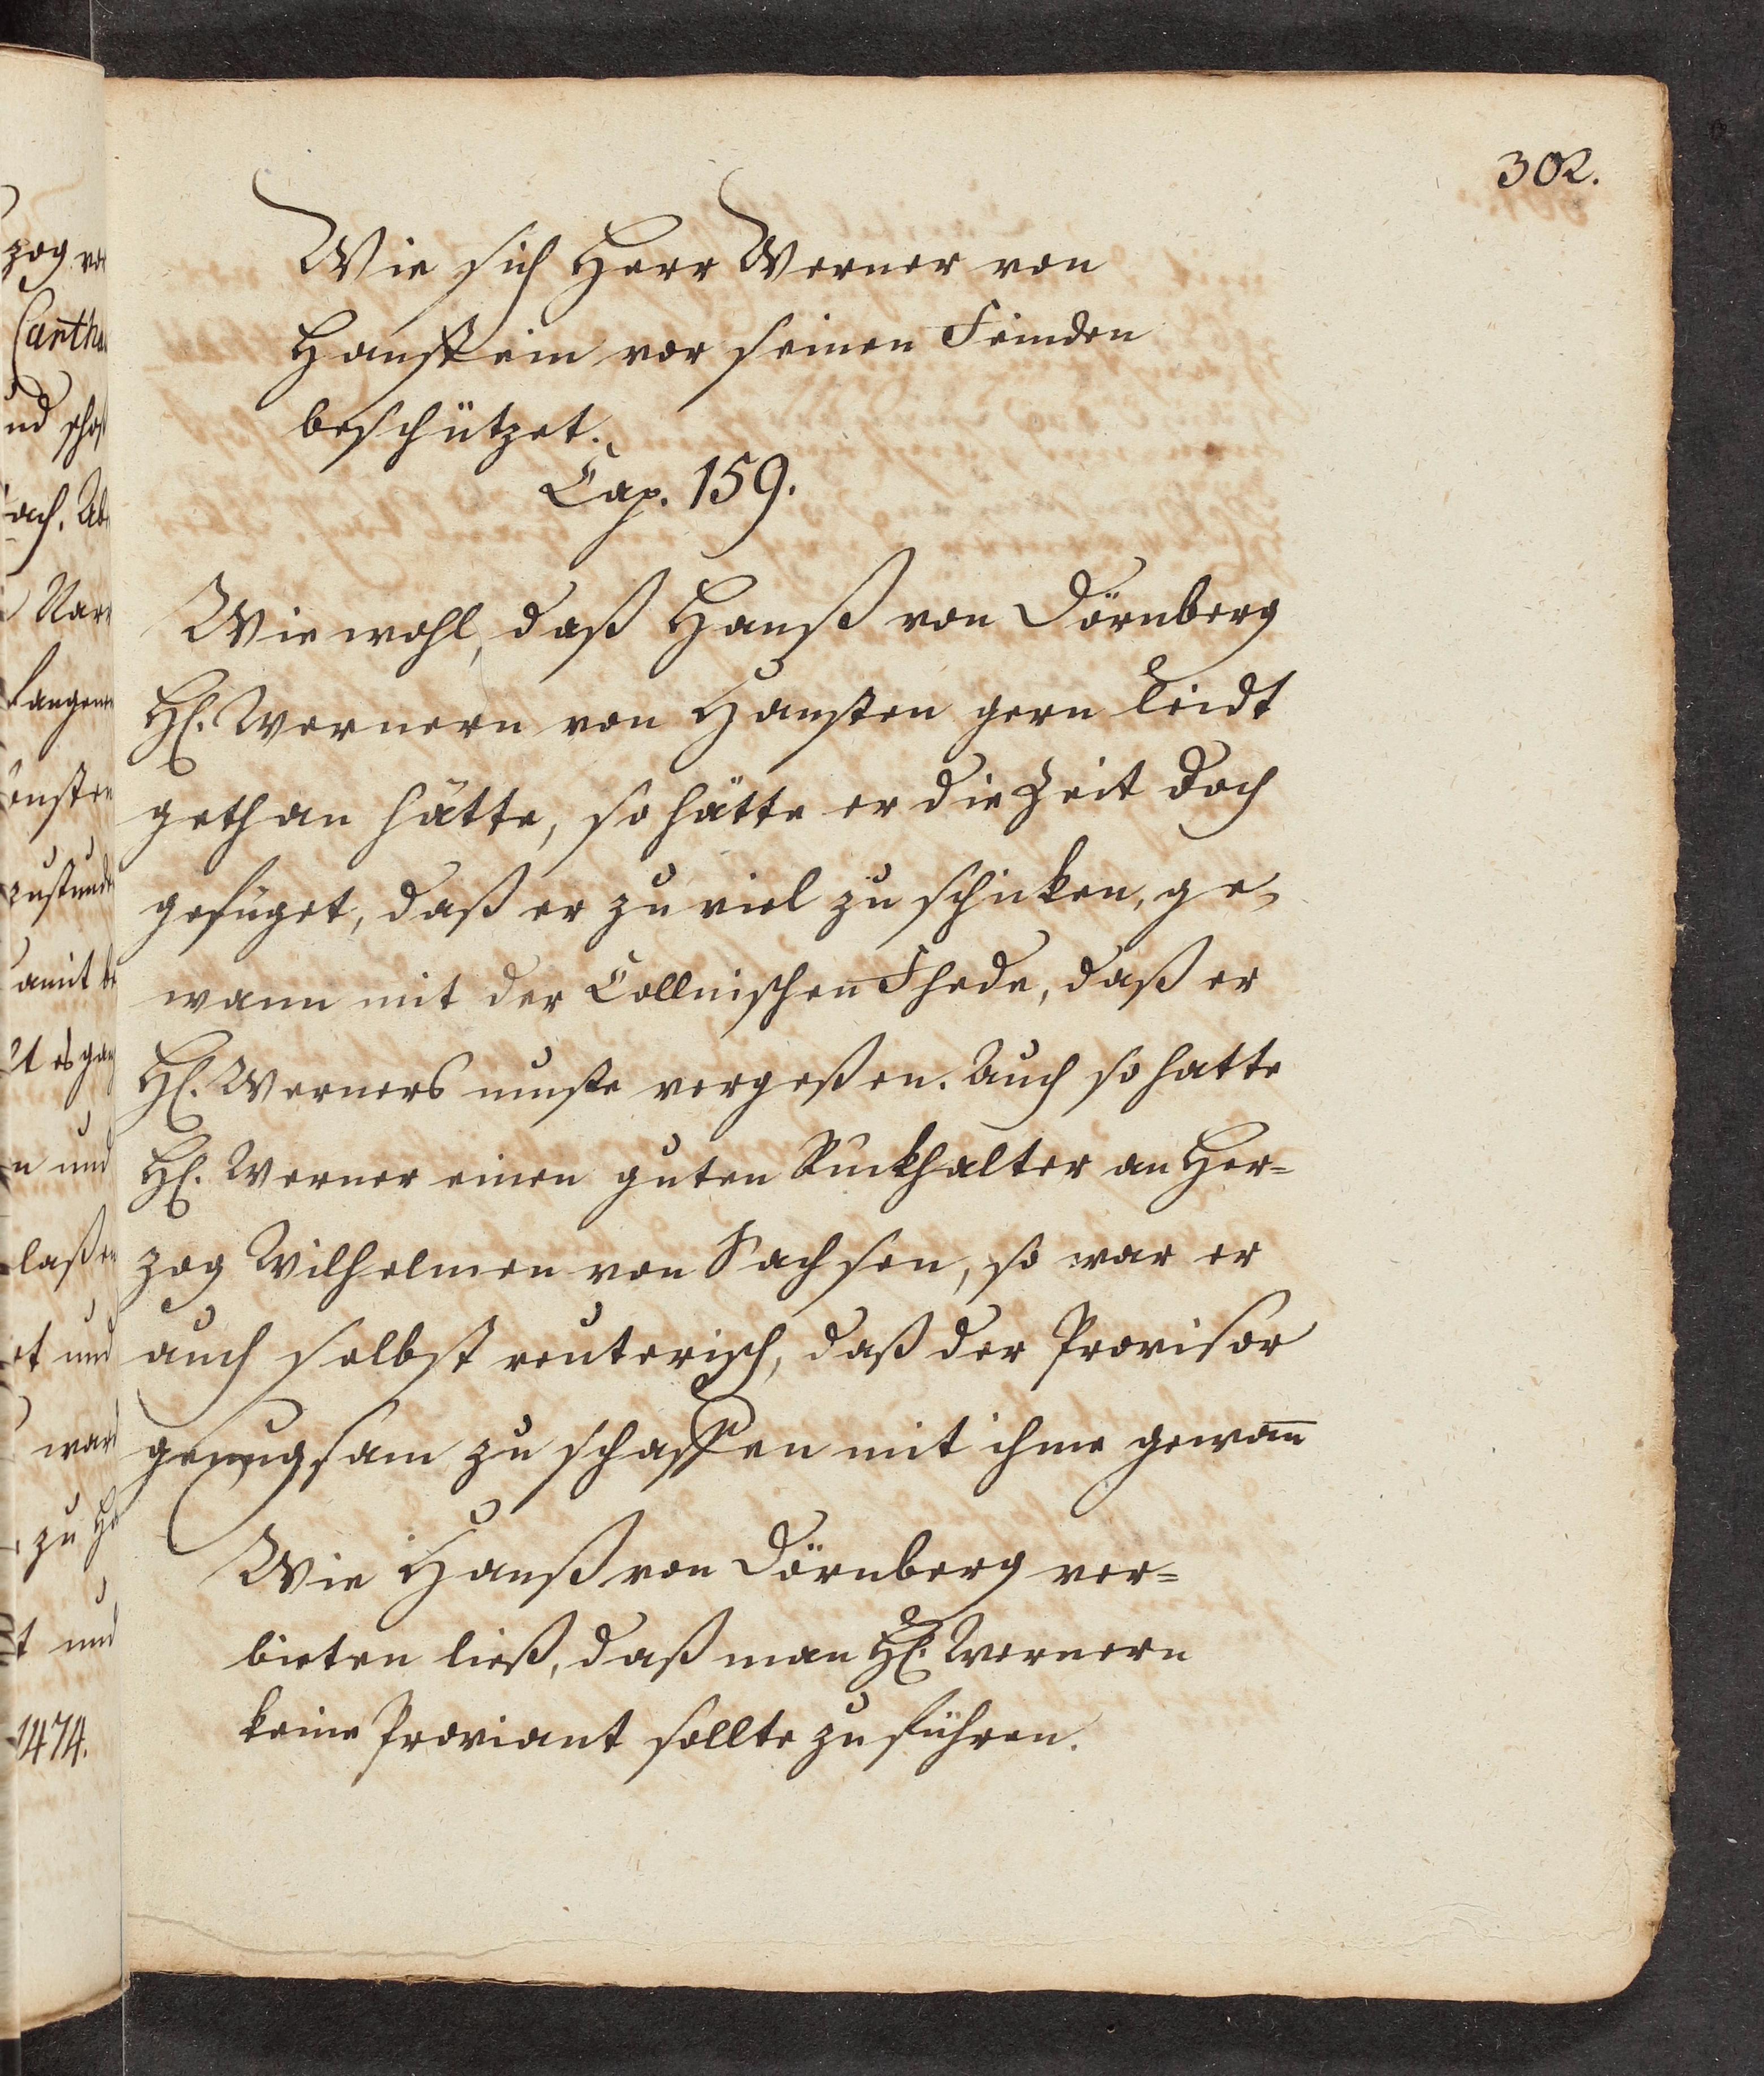 302.
Wie sich Herr Werner von
Hanstein vor seinen Feinden
beschützet.
Cap. 159.
Wie wohl, daß Hanß von Dörnberg
H. Wernern von Hansten gern Leidt
gethan hätte, so hätte er die Zeit doch
gefüget, daß er zu viel zu schicken, ge-
wann mit der Collnischen Fhede, daß er
H. Werners muste vergeßen. Auch so hatte
H. Werner einen guten Rückhalter an Her=
zog Wilhelmen von Sachsen, so war er
auch selbst reuterisch, daß der Provisor
genugsam zu schaffen mit ihme gewan̄
Wie Hanß von Dörnberg ver=
bieten ließ, daß man H. Wernern
keine Proviant sollte zu führen.
1474.